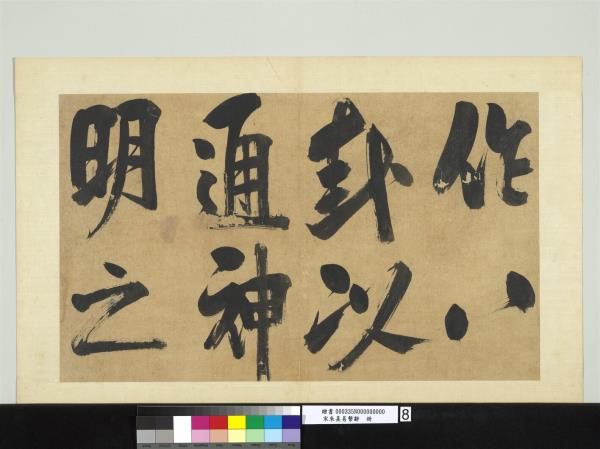 作八
卦以
通神
明之
贈書 000335N000000000
宋朱熹易繫辭 冊
8